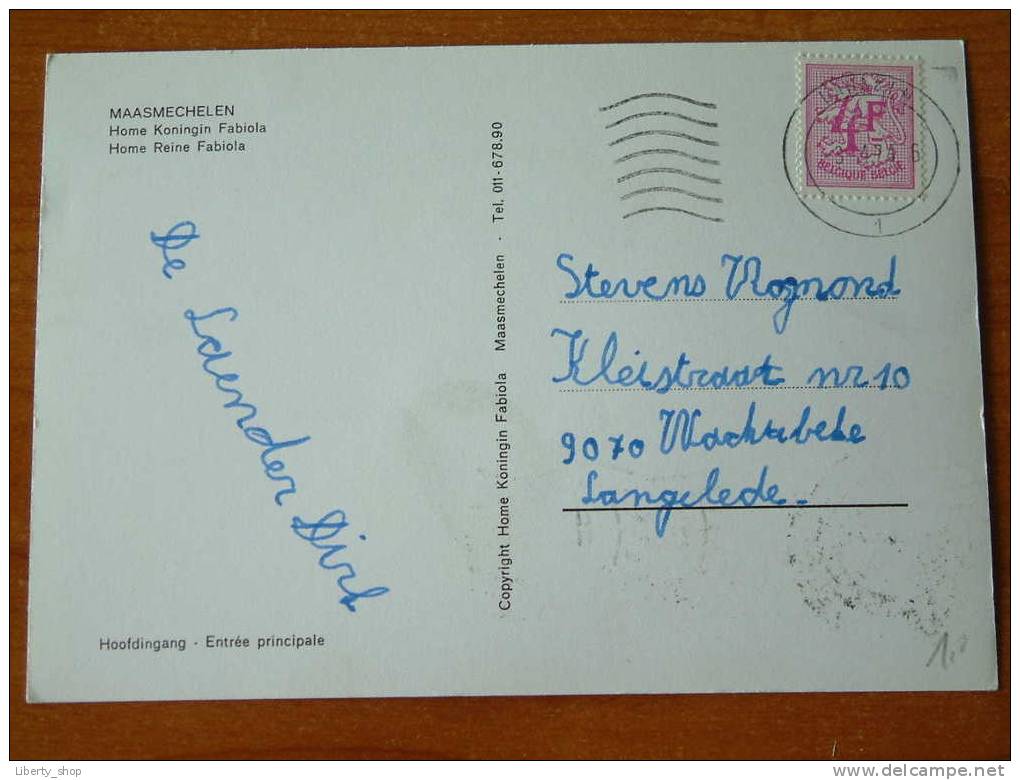 MAASMECHELEN
Home Koningin Fabiola
Home Reine Fabiola
De Laender Dirk
Hoofdingang - Entrée principale
Copyright Home Koningin Fabiola Maasmechelen - Tel. 011-678.90
4F
BELGIQUE BELGIE
1
Stevens
Kleistraat nr 10
9070 Wachtebeke
Langelede.
Liberty_shop
delcampe.net